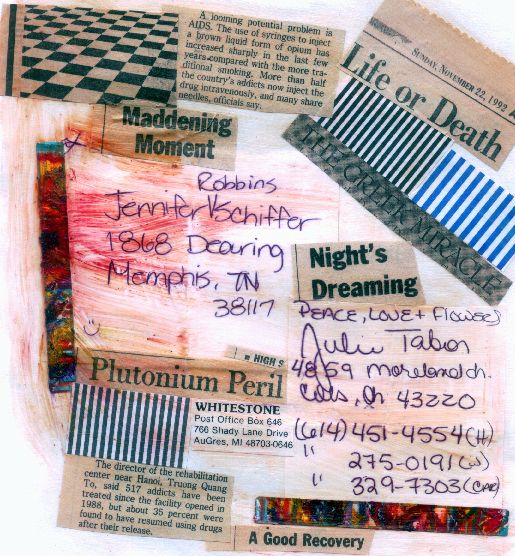 A looming potential problem is
AIDS. The use of syringes to inject
a brown liquid form of opium has
increased sharply in the last few
years compared with the more tra-
ditional smoking. More than half
the country's addicts now inject the
drug intravenously, and many share
needles, officials say.
SUNDAY, NOVEMBER 22, 1992
Life or Death
THE GREEK MIRACLE
Maddening
Moment
Robbins
Jennifer Schiffer
1868 Dearing
Memphis, TN
38117
Night's
Dreaming
PEACE, LOVE + FLOWERS
Julie Tabor
4859 moreland dr.
Cols, Oh 43220
(614) 451-4554 (H)
" 275-0191 (w)
" 329-7303 (CAR)
HIGH S
Plutonium Peril
WHITESTONE
Post Office Box 646
766 Shady Lane Drive
AuGres, MI 48703-0646
The director of the rehabilitation
center near Hanoi, Truong Quang
To, said 517 addicts have been
treated since the facility opened in
1988, but about 35 percent were
found to have resumed using drugs
after their release.
A Good Recovery